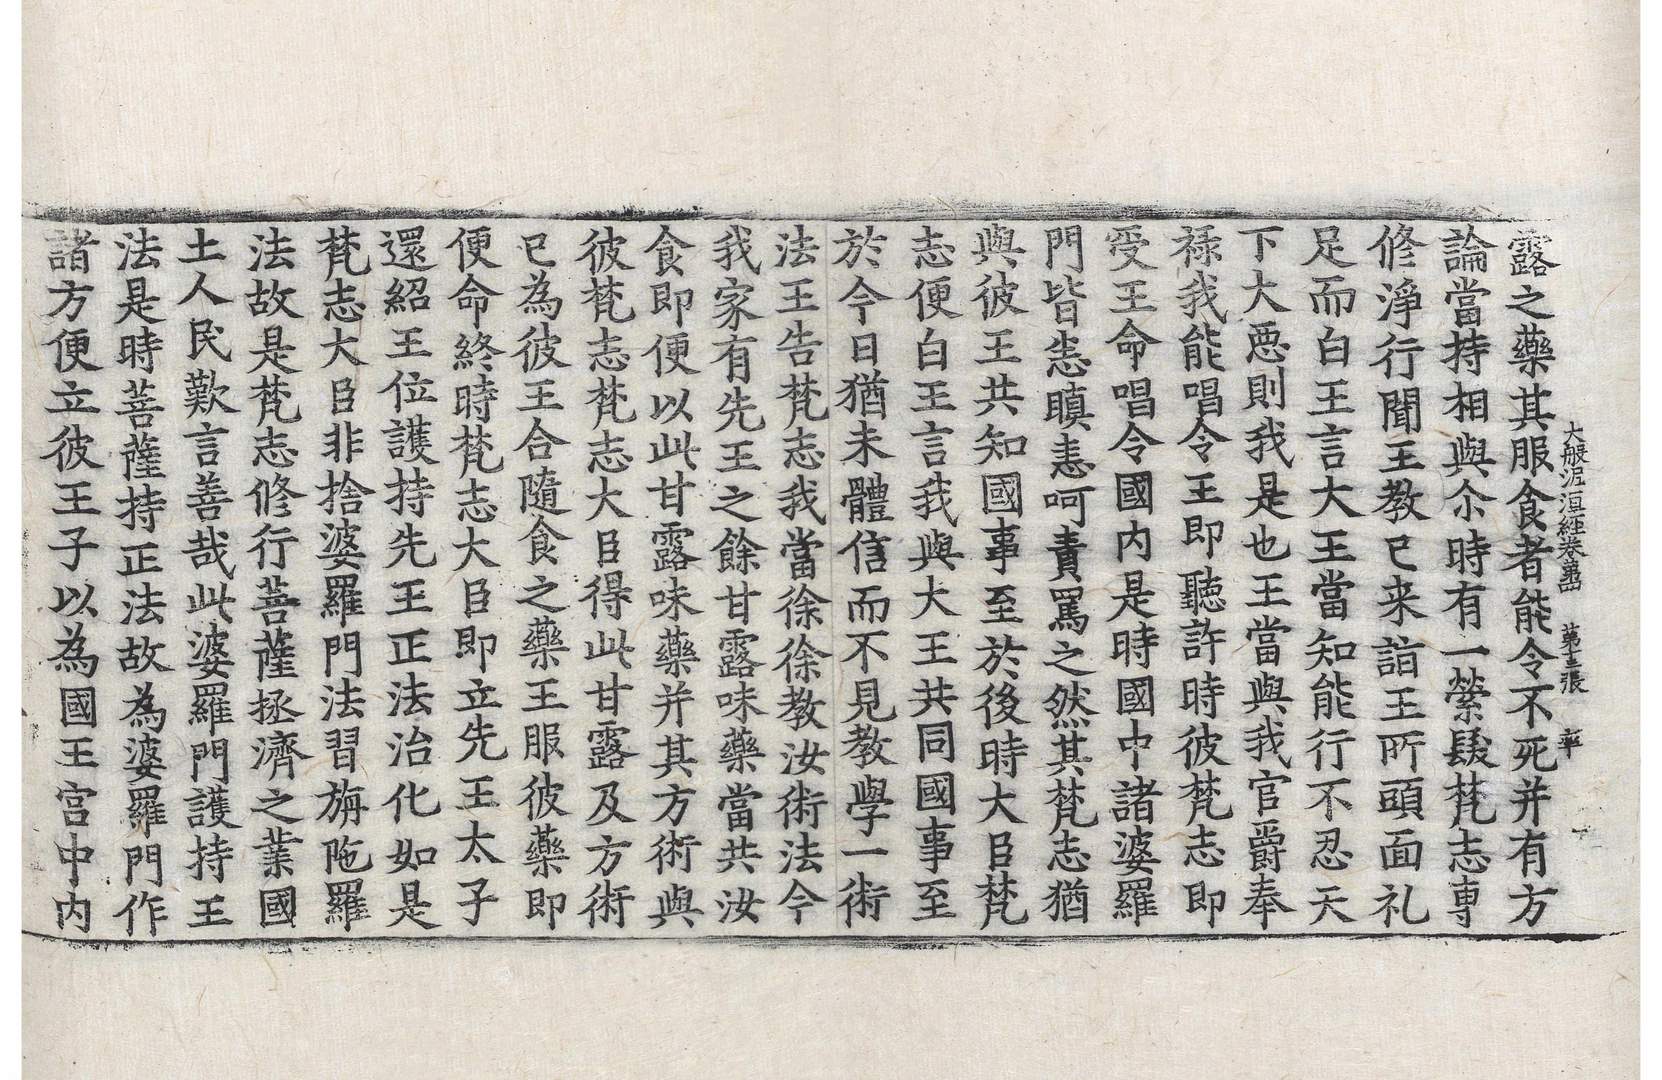 大般泥洹經卷第四 第十三張 華
露之藥其服食者能令不死并有方
論當持相與尒時有一縈髮梵志專
修淨行聞王教已来詣王所頭面礼
足而白王言大王當知能行不忍天
下大惡則我是也王當與我官爵奉
祿我能唱令王即聽許時彼梵志即
受王命唱令國內是時國中諸婆羅
門皆恚瞋恚呵責罵之然其梵志猶
與彼王共知國事至於後時大臣梵
志便白王言我與大王共同國事至
於今日猶未體信而不見教學一術
法王告梵志我當徐徐教汝術法今
我家有先王之餘甘露味藥當共汝
食即便以此甘露味藥并其方術與
彼梵志梵志大臣得此甘露及方術
已為彼王合隨食之藥王服彼藥即
便命終時梵志大臣即立先王太子
還紹王位護持先王正法治化如是
梵志大臣非捨婆羅門法習旃陁羅
法故是梵志修行菩薩拯濟之業國
土人民歎言善哉此婆羅門護持王
法是時菩薩持正法故為婆羅門作
諸方便立彼王子以為國王宮中內